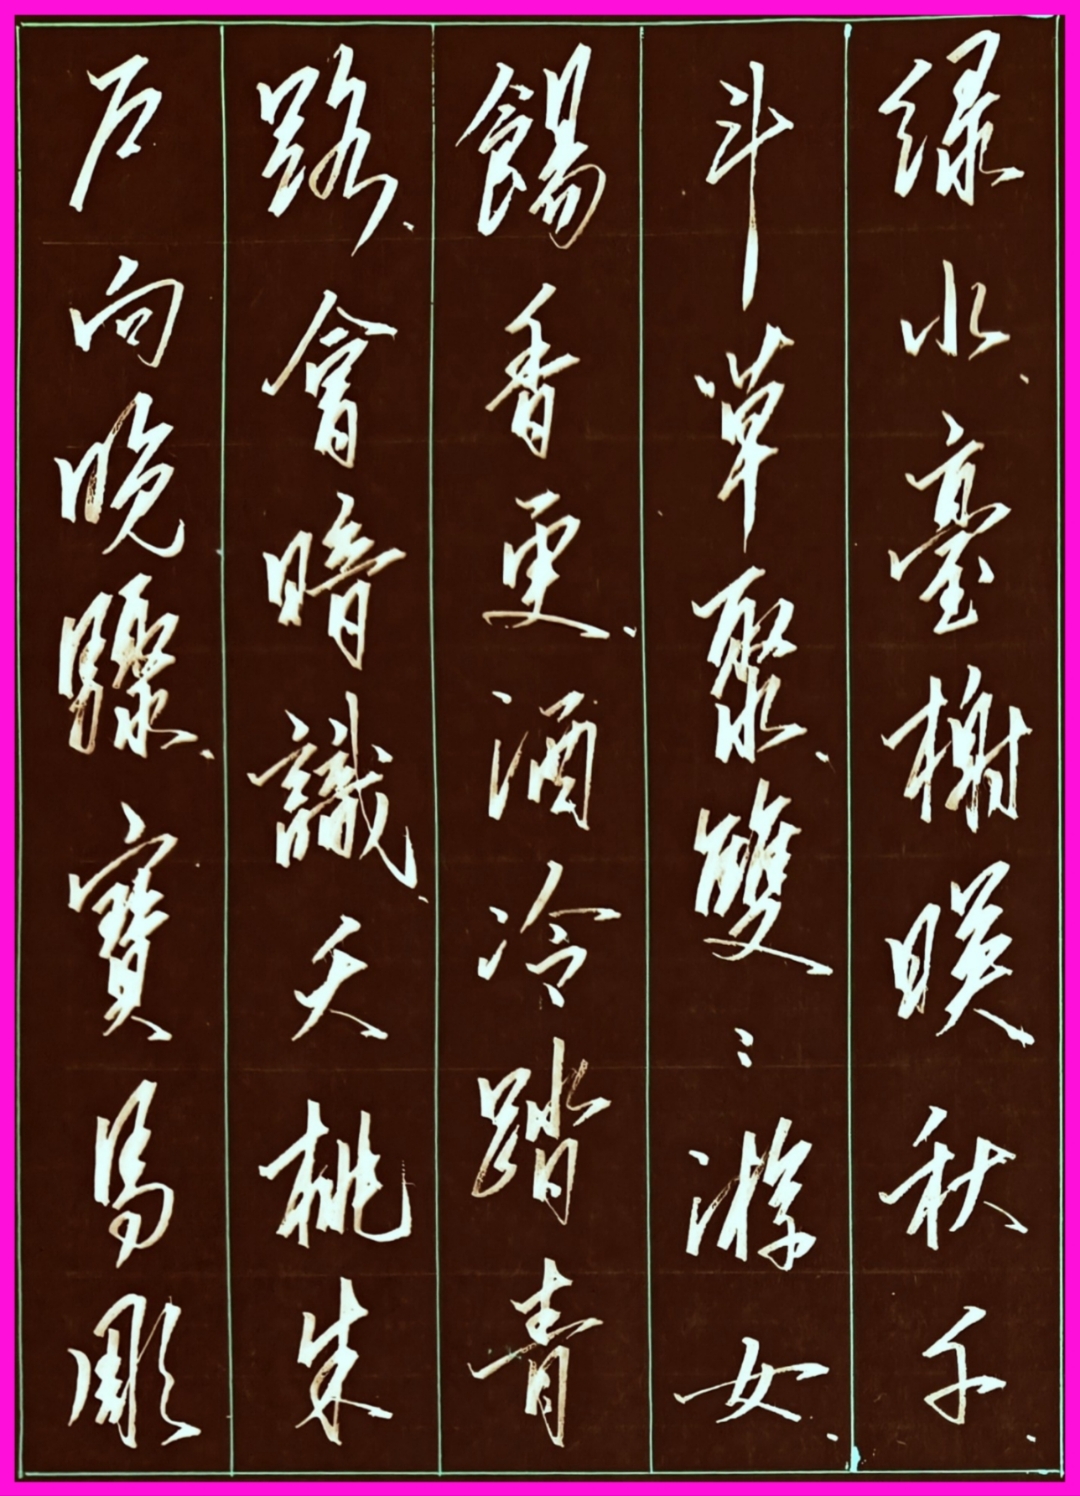 绿水、臺榭暎秋千、
斗草聚、雙〻游女、
餳香更、酒冷踏青
路、會暗識、夭桃朱
户向晚驟、寶馬彫